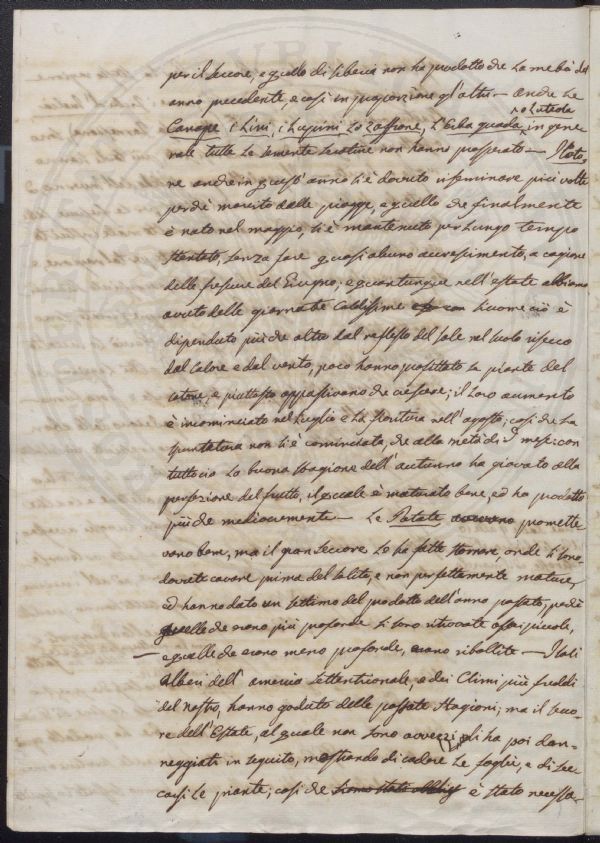 per il seccore, e quello di Siberia non ha prodotto che la metà del
anno precedente, e così in proporzione gl'altri — Anche le
o siateda
Canape, i Lini, i Lupini, Lo Zaffrone, L'Erba guada in gene-
rale tutte le semente serotine non hanno prosperato — Il Coto-
ne anche in quest'anno si è dovuto riseminare più volte
perchè marcito dalle piogge, e quello che finalmente
è nato nel maggio, si è mantenuto per lungo tempo
stentato, senza fare quasi alcuno accrescimento, a cagione
delle frescure del Giugno, e quantunque nell'estate abbiamo
avuto delle giornate caldissime siccome ciò è
dipenduto più che altro dal riflesso del sole nel suolo risecco
dal calore e dal vento, poco hanno profittato le piante del
cotone, e piuttosto appassivano che crescere; il loro aumento
è incominciato nel Luglio e la fioritura nell'agosto; così che la
spuntatura non si è cominciata, che alla metà di 9 mese: con
tutto ciò la buona stagione dell'autunno ha giovato alla
perfezione del frutto, il quale è maturato bene, ed ha prodotto
più che mediocremente — Le Patate promette-
vano bene, ma il gran seccore le ha fatte stornare, onde si sono
dovute cavare prima del solito, e non perfettamente mature,
ed hanno dato un settimo del prodotto dell'anno passato, perchè
quelle che erano più profonde si sono ritrovate assai piccole,
e quelle che erano meno profonde, erano ribollite — I tali
Alberi dell'america settentrionale, e dei Climi più freddi
del nostro, hanno goduto delle passate stagioni; ma il secco-
re dell'Estate, al quale non sono avvezzi, gli ha poi dan-
neggiati in seguito, mostrando di cadere le foglie, e di sec-
carsi le piante; così che è stato necessa-